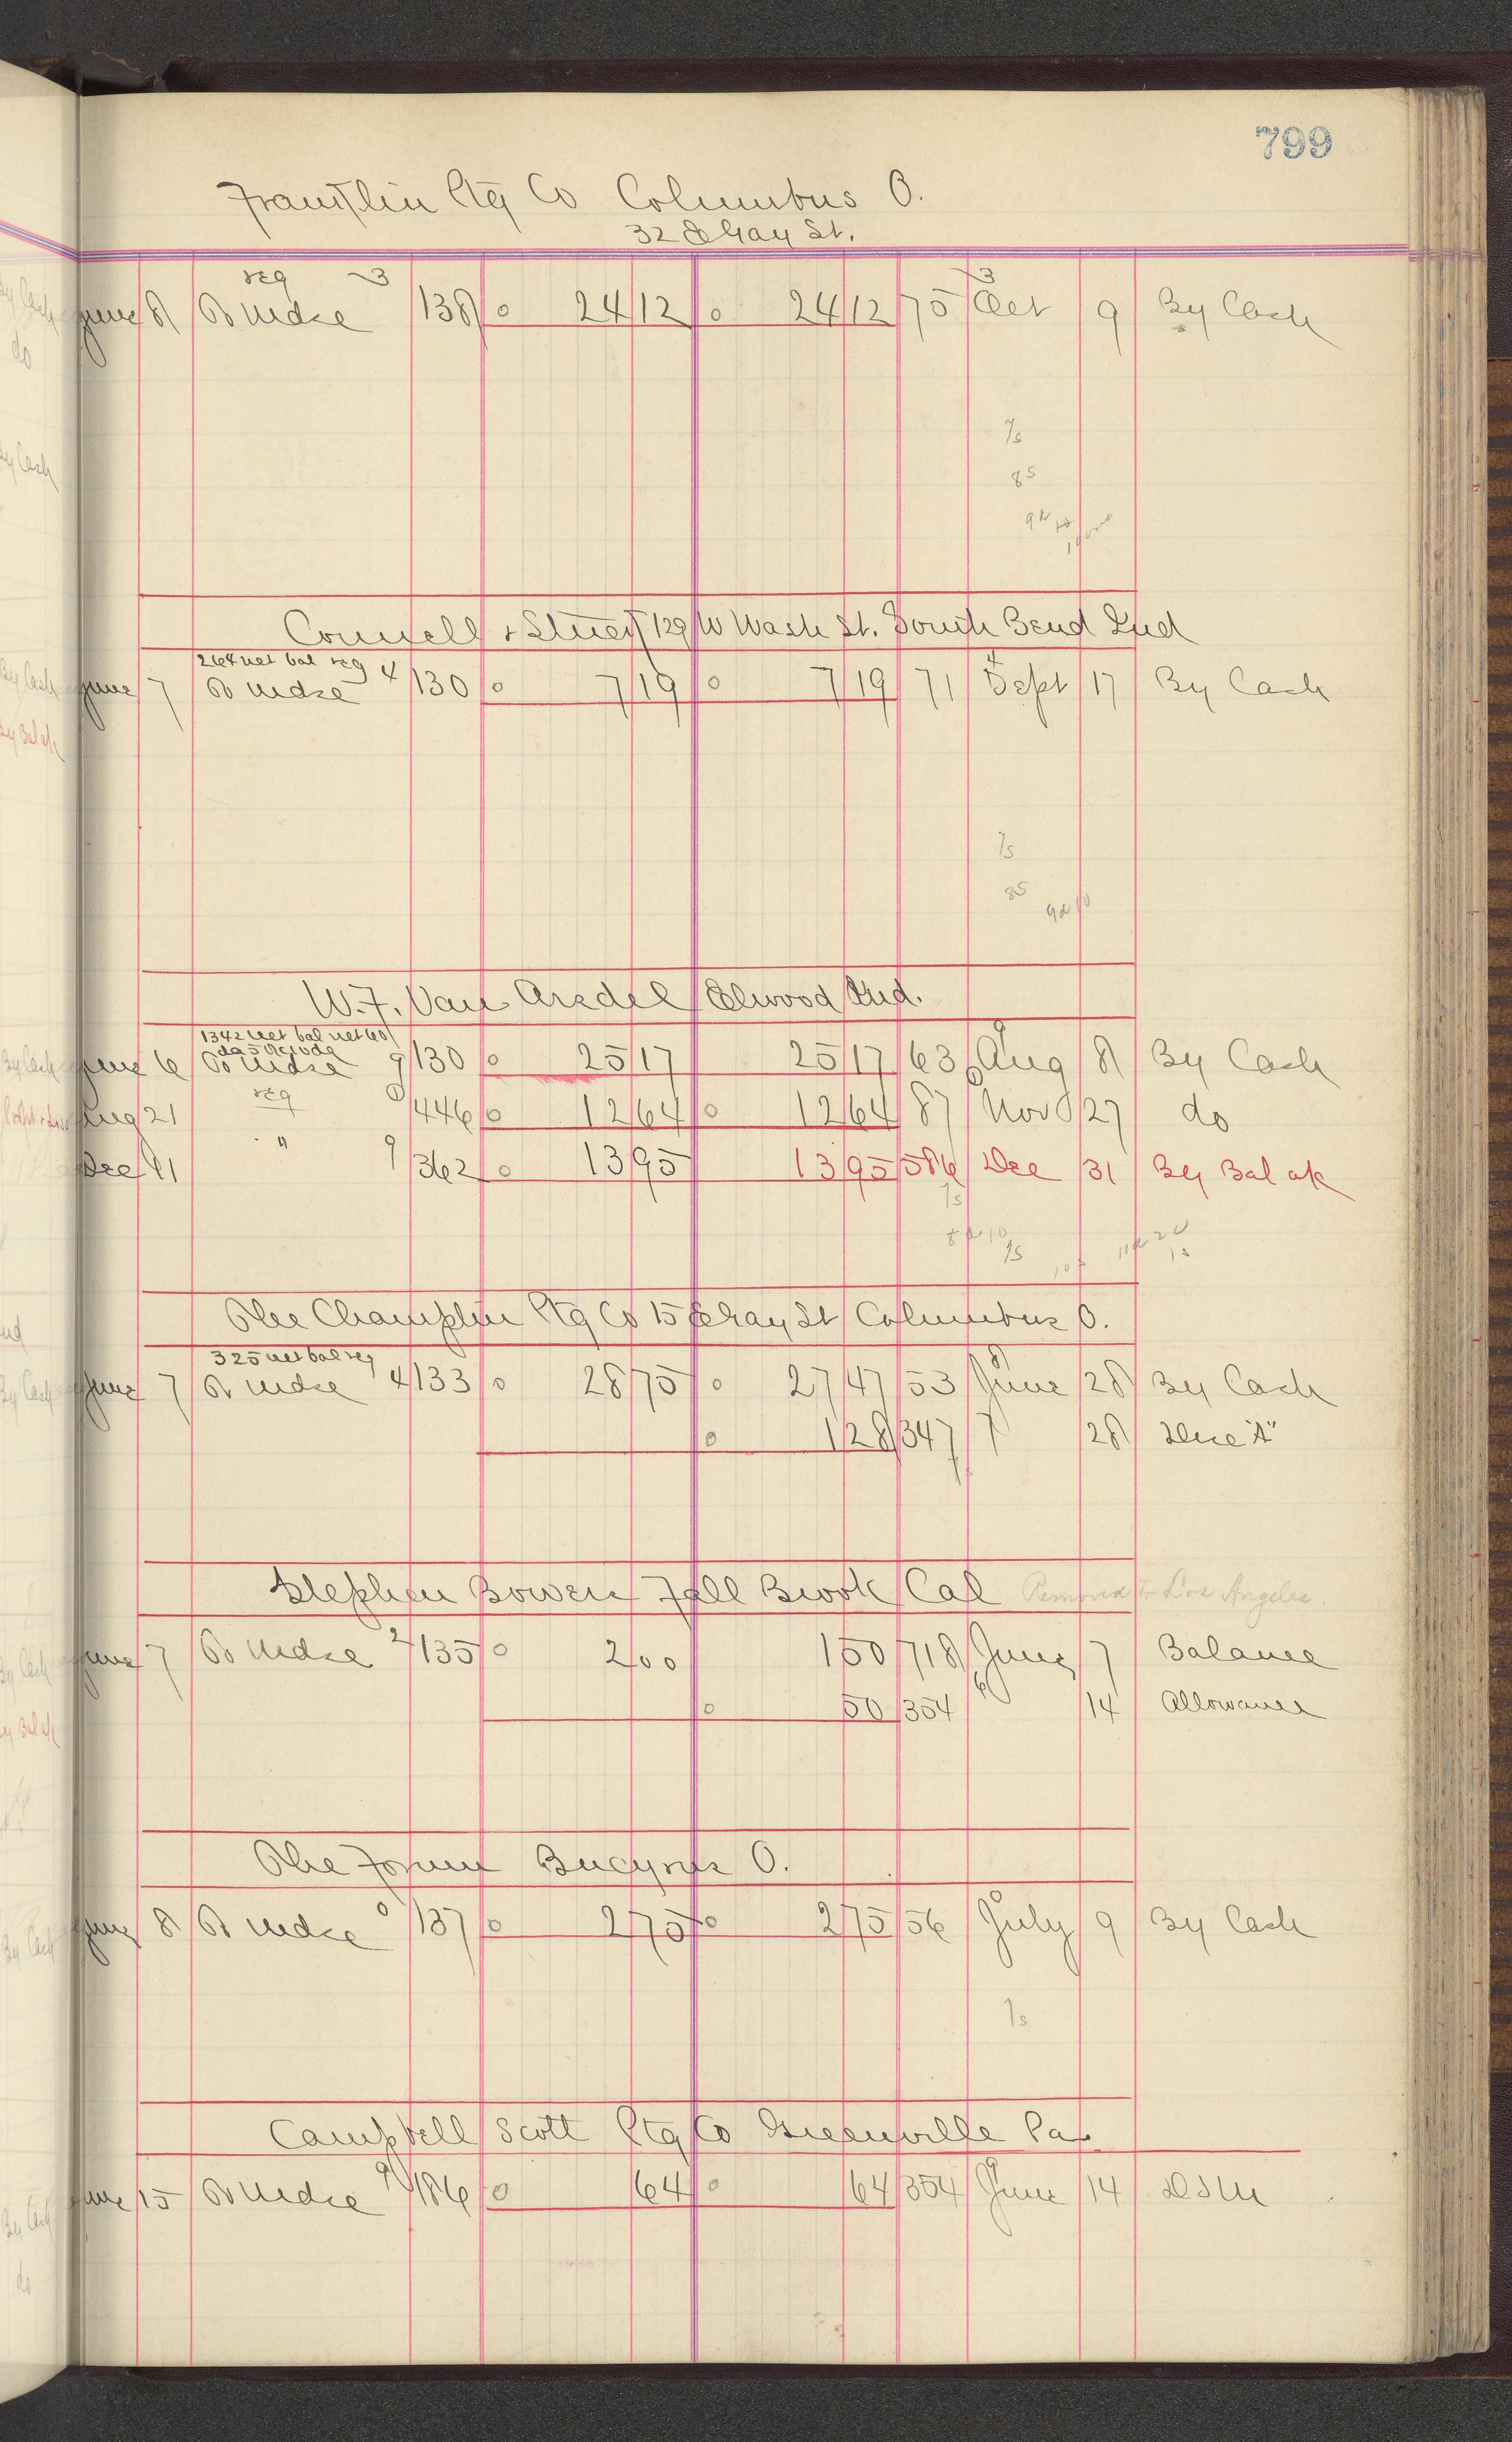 799
Franklin Ptg Co Columbus O.
32 E Gay St.
reg 3 3
June 8 To Mdse 138 0 24 12 0 24 12 75 Oct 9 By Cash
7/5
85
Connell + 129 W Wash St. South Bend Ind
264 net bal reg 4 4
June 7 To Mdse 130 0 7 19 0 7 19 71 Sept 17 By Cash
7/5
85
W. F. Van Arsdel Elwood Ind.
1342 net bal net 60
June 6 To Mdse 9 130 0 25 17 25 17 63 Aug 8 By Cash
Aug 21 reg 446 0 12 64 0 12 64 87 Nov 27 do
Dec 11 " 9 362 0 13 95 13 95 586 Dec 31 By Bal
The Champlin Ptg Co 15 E Gay St Columbus O.
325 net bal reg 8
June 7 To Mdse 4 133 0 28 75 0 27 47 53 June 28 By Cash
0 1 28 347 7 28 "A"
Stephen Bowers Fall Brook Cal Removed to Los Angeles.
June 7 To Mdse 2 135 0 2 00 1 50 718 June 7 Balance
0 50 354 6 14 Allowance
The Forum Bucyrus O.
June 8 To Mdse 0 137 0 2 75 0 2 75 56 July 9 By Cash
7/5
Campbell Scott Ptg Co Greenville Pa
June 15 To Mdse 9 186 0 64 0 64 354 June 14